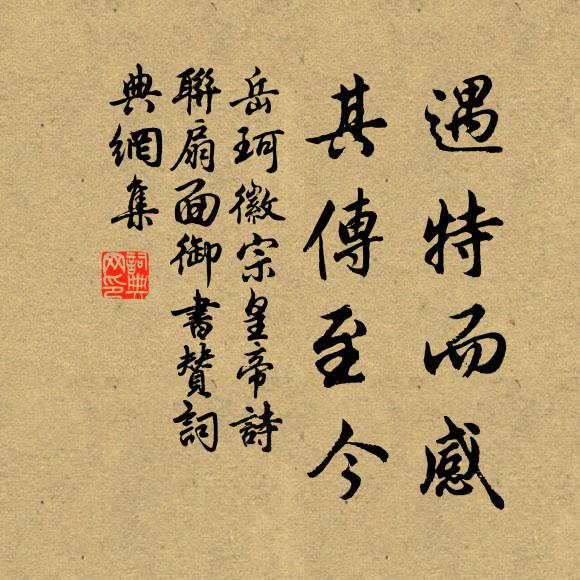 遇特而感
其傳至今
岳珂徽宗皇帝詩
聯扇面御書贊詞
典網集
詞典網印